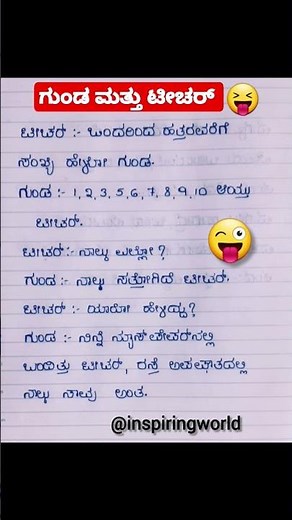 ಗುಂಡ ಮತ್ತು ಟೀಚರ್
ಟೀಚರ್ :- ಒಂದರಿಂದ ಹತ್ತರವರೆಗೆ
ಸಂಖ್ಯೆ ಹೇಳೋ ಗುಂಡ.
ಗುಂಡ :- 1, 2, 3, 5, 6, 7, 8, 9, 10 ಆಯ್ತು
ಟೀಚರ್.
ಟೀಚರ್ :- ನಾಲ್ಕು ಎಲ್ಲೋ?
ಗುಂಡ :- ನಾಲ್ಕು ಸತ್ತೋಗಿದೆ ಟೀಚರ್.
ಟೀಚರ್ :- ಯಾರೋ ಹೇಳಿದ್ದು?
ಗುಂಡ :- ನಿನ್ನೆ ನ್ಯೂಸ್ ಪೇಪರ್‌ನಲ್ಲಿ
ಬಂದಿತ್ತು ಟೀಚರ್, ರಸ್ತೆ ಅಪಘಾತದಲ್ಲಿ
ನಾಲ್ಕು ಸಾವು ಅಂತ.
@inspiringworld